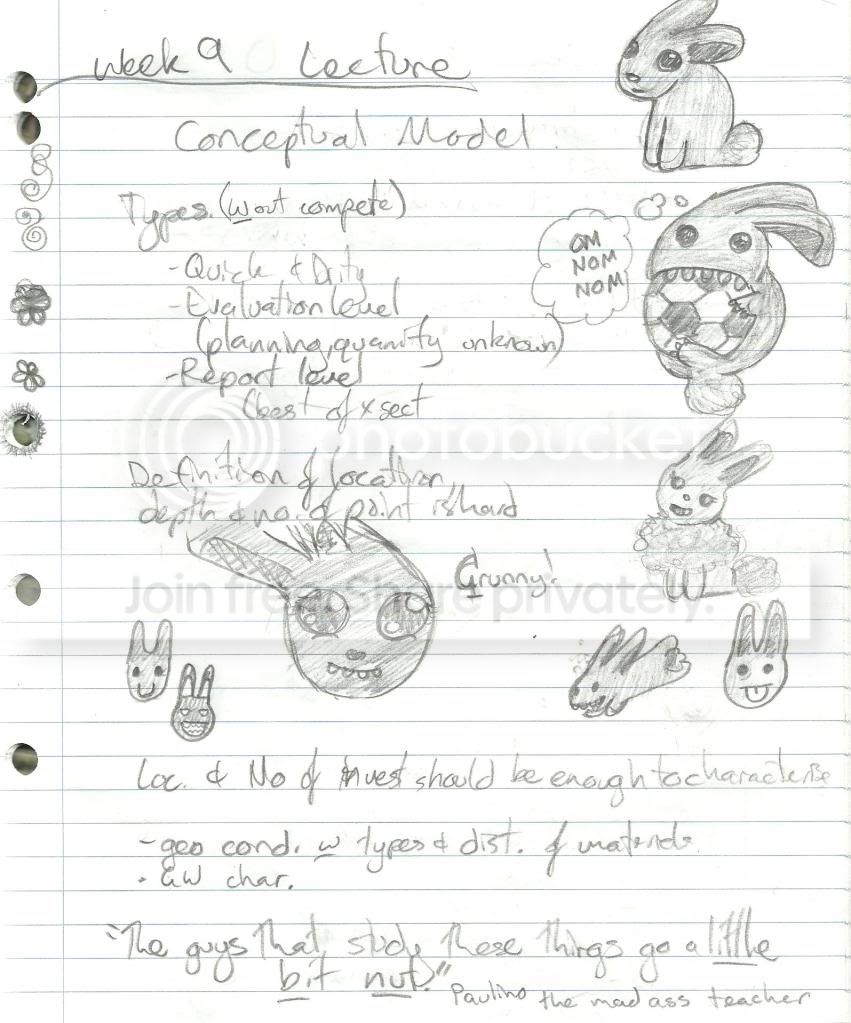 Week 9 Lecture
Conceptual Model
Types. (Wout compete)
OM
NOM
NOM
- Quick & Drity
- Evaluation level
(planning, quantify unknown)
- Report level
(best of x sect
photobucket
Definition of location,
depth & no. of point is hard
Grunny!
Join free. Share privately.
Loc. & No of invest should be enough to characterise
- geo cond. w types & dist. of materials
- GW char.
"The guys that study these things go a little
bit nut."
Paulino the mad ass teacher